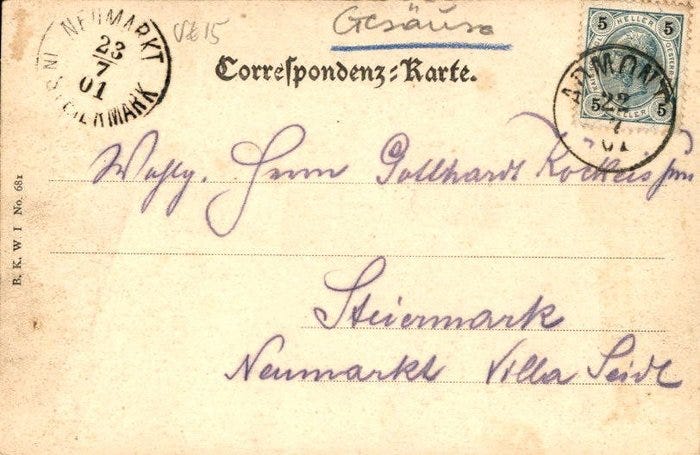 Gesäuse
VE 15
NEUMARKT
IN STEIERMARK
23
7
01
Correspondenz-Karte.
5 HELLER 5
5 HELLER 5
ADMONT
22
7
01
B. K. W. I No. 681
Wohlg. Herrn Gotthardt
Steiermark
Neumarkt Villa Seidl